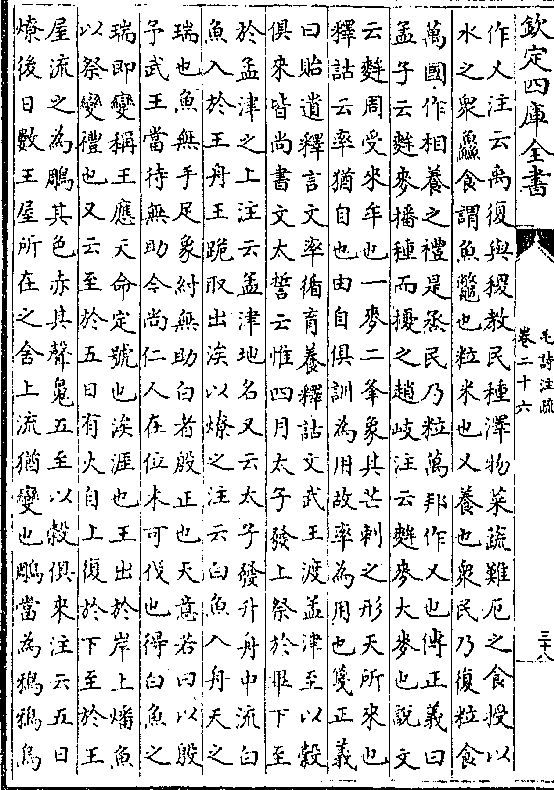 欽定四庫全書
毛詩注疏
卷二十六
三十八
作乂注云禹復與稷教民種澤物菜蔬難厄之食授以
水之衆鱻食謂魚鼈也粒米也乂養也衆民乃復粒食
萬國作相養之禮是烝民乃粒萬邦作乂也傳正義曰
孟子云麰麥播種而擾之趙岐注云麰麥大麥也說文
云麰周受來牟也一麥二夆象其芒刺之形天所來也
釋詁云率猶自也由自俱訓為用故率為用也箋正義
曰貽遺釋言文率循育養釋詁文武王渡孟津至以穀
俱來皆尚書文太誓云惟四月太子發上祭於畢下至
於孟津之上注云孟津地名又云太子發升舟中流白
魚入於王舟王跪取出涘以燎之注云白魚入舟天之
瑞也魚無手足象紂無助白者殷正也天意若曰以殷
予武王當待無助今尚仁人在位未可伐也得白魚之
瑞即變稱王應天命定號也涘涯也王出於岸上燔魚
以祭變禮也又云至於五日有火自上復於下至於王
屋流之為鵰其色赤其聲魄五至以穀俱來注云五日
燎後日數王屋所在之舍上流猶變也鵰當為鴉鴉烏